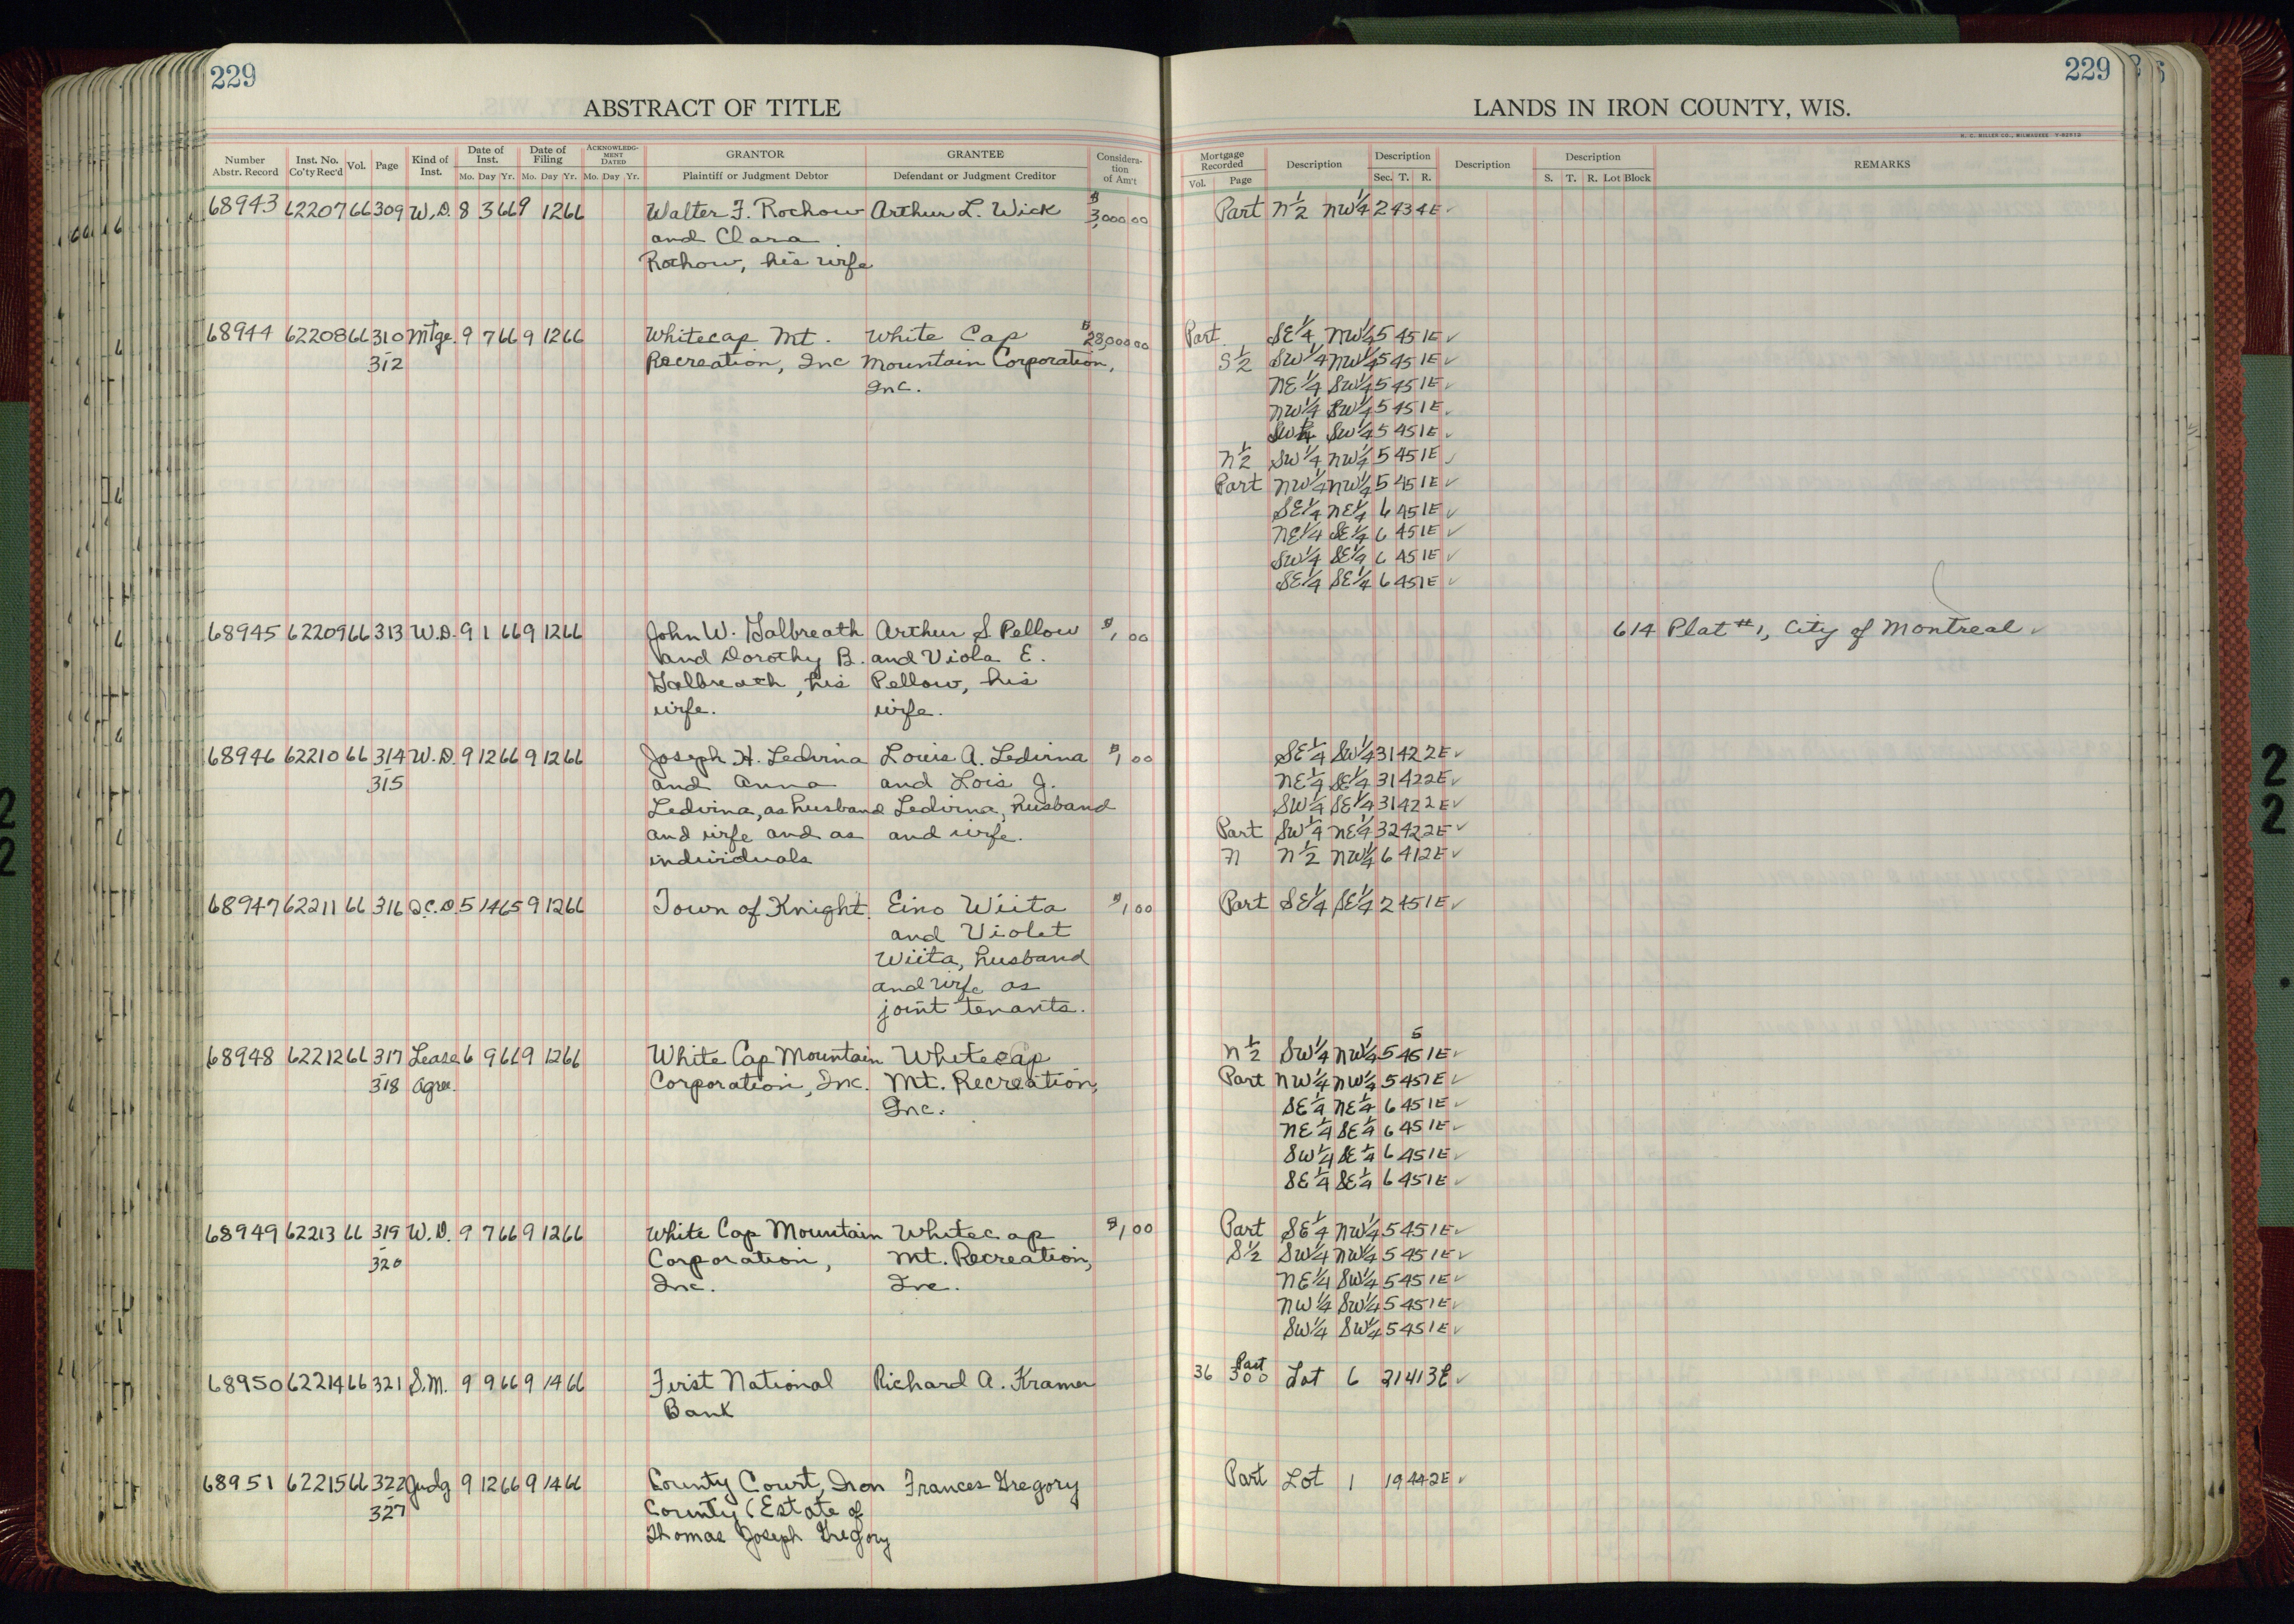 229
ABSTRACT OF TITLE
Number Abstr. Record
Inst. No. Co'ty Rec'd
Vol.
Page
Kind of Inst.
Date of Inst. Mo. Day Yr.
Date of Filing Mo. Day Yr.
ACKNOWLEDGMENT DATED Mo. Day Yr.
GRANTOR Plaintiff or Judgment Debtor
GRANTEE Defendant or Judgment Creditor
Consideration of Am't
68943 62207 66 309 W.D. 8 3 66 9 12 66 Walter F. Rochow Arthur L. Wick $3,000.00
and Clara
Rochow, his wife
68944 62208 66 310 Mtge. 9 7 66 9 12 66 Whitecap Mt. White Cap $28,000.00
- 312 Recreation, Inc Mountain Corporation,
Inc.
68945 62209 66 313 W.D. 9 1 66 9 12 66 John W. Galbreath Arthur S. Pellow $1.00
and Dorothy B. and Viola E.
Galbreath, his Pellow, his
wife. wife.
68946 62210 66 314 W.D. 9 12 66 9 12 66 Joseph H. Ledvina Louis A. Ledvina $1.00
- 315 and Anna and Lois J.
Ledvina, as husband Ledvina, husband
and wife and as and wife.
individuals
68947 62211 66 316 Q.C.D. 5 14 65 9 12 66 Town of Knight Eino Wiita $1.00
and Violet
Wiita, husband
and wife as
joint tenants.
68948 62212 66 317 Lease 6 9 66 9 12 66 White Cap Mountain Whitecap
- 318 Agree. Corporation, Inc. Mt. Recreation,
Inc.
68949 62213 66 319 W.D. 9 7 66 9 12 66 White Cap Mountain Whitecap $1.00
- 320 Corporation, Mt. Recreation,
Inc. Inc.
68950 62214 66 321 S.M. 9 9 66 9 14 66 First National Richard A. Kramer
Bank
68951 62215 66 322 Judg 9 12 66 9 14 66 County Court, Iron Frances Gregory
- 327 County (Estate of
Thomas Joseph Gregory
229
LANDS IN IRON COUNTY, WIS.
H. C. MILLER CO., MILWAUKEE
Mortgage Recorded Vol. Page
Description
Description Sec. T. R.
Description
Description S. T. R. Lot Block
REMARKS
Part N½ NW¼ 2 43 4E ✓
Part SE¼ NW¼ 5 45 1E ✓
S½ SW¼ NW¼ 5 45 1E ✓
NE¼ SW¼ 5 45 1E ✓
NW¼ SW¼ 5 45 1E ✓
SW¼ SW¼ 5 45 1E ✓
N½ SW¼ NW¼ 5 45 1E ✓
Part NW¼ NW¼ 5 45 1E ✓
SE¼ NE¼ 6 45 1E ✓
NE¼ SE¼ 6 45 1E ✓
SW¼ SE¼ 6 45 1E ✓
SE¼ SE¼ 6 45 1E ✓
614 Plat #1, City of Montreal ✓
SE¼ SW¼ 31 42 2E ✓
NE¼ SE¼ 31 42 2E ✓
SW¼ SE¼ 31 42 2E ✓
Part SW¼ NE¼ 32 42 2E ✓
N N½ NW¼ 6 41 2E ✓
Part SE¼ SE¼ 2 45 1E ✓
5
N½ SW¼ NW¼ 5 45 1E ✓
Part NW¼ NW¼ 5 45 1E ✓
SE¼ NE¼ 6 45 1E ✓
NE¼ SE¼ 6 45 1E ✓
SW¼ SE¼ 6 45 1E ✓
SE¼ SE¼ 6 45 1E ✓
Part SE¼ NW¼ 5 45 1E ✓
S½ SW¼ NW¼ 5 45 1E ✓
NE¼ SW¼ 5 45 1E ✓
NW¼ SW¼ 5 45 1E ✓
SW¼ SW¼ 5 45 1E ✓
Part
36 300 Lot 6 21 41 3E ✓
Part Lot 1 19 44 2E ✓